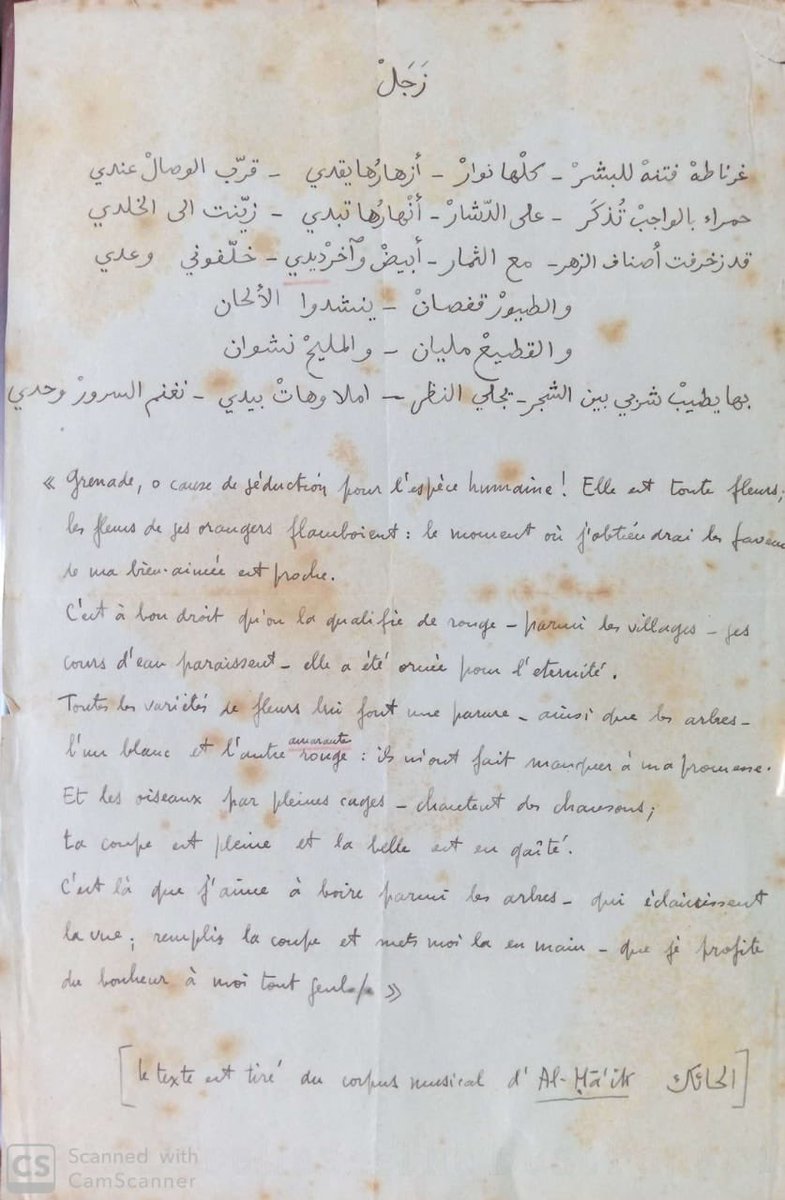 زَجَلْ
غرناطة فتنة للبشرْ - كلْها نوارْ - أزهارُها يقدي - قرّب الوصالْ عندي
حمراء بالواجبْ تُذكَر - على الدّشارْ - أنْهارُها تبدي - زيّنت الى الخلدي
قد زخرفت أصناف الزهر - مع الثمار - أبيضْ وآخرْ ديدي - خلّفوني وعدي
والطيورْ قفصانْ - ينشدوا الألحان
والقطيعْ مليان - والمليحْ نشوان
بها يطيبْ شربي بين الشجر - يجلي النظر - املا وهاتْ بيدي - نغنم السرورْ وحدي
« Grenade, o cause de séduction pour l'espèce humaine ! Elle est toute fleurs;
les fleurs de ses orangers flamboient : le moment où j'obtiendrai les faveu
de ma bien-aimée est proche.
C'est à bon droit qu'on la qualifie de rouge - parmi les villages - ses
cours d'eau paraissent - elle a été ornée pour l'eternité.
Toutes les variétés de fleurs lui font une parure - ainsi que les arbres -
amarante
l'un blanc et l'autre rouge : ils m'ont fait manquer à ma promesse.
Et les oiseaux par pleines cages - chantent des chansons;
la coupe est pleine et la belle est en gaîté.
C'est là que j'aime à boire parmi les arbres - qui éclaircissent
la vue; remplis la coupe et mets moi la en main - que je profite
du bonheur à moi tout seul »
[le texte est tiré du corpus musical d'Al-Ḥā'ik الحائك]
CS Scanned with
CamScanner